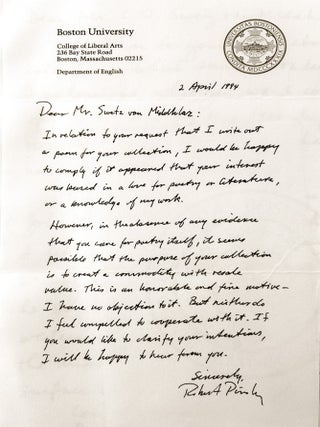 Boston University
College of Liberal Arts
236 Bay State Road
Boston, Massachusetts 02215
Department of English
2 April 1994
Dear Mr. Swets von Middlelaz:
In relation to your request that I write out
a poem for your collection, I would be happy
to comply if it appeared that your interest
was based in a love for poetry or literature,
or a knowledge of my work.
However, in the absence of any evidence
that you care for poetry itself, it seems
possible that the purpose of your collection
is to create a commodity with resale
value. This is an honorable and fine motive—
I have no objection to it. But neither do
I feel compelled to cooperate with it. If
you would like to clarify your intentions,
I will be happy to hear from you.
Sincerely,
Robert Pinsky